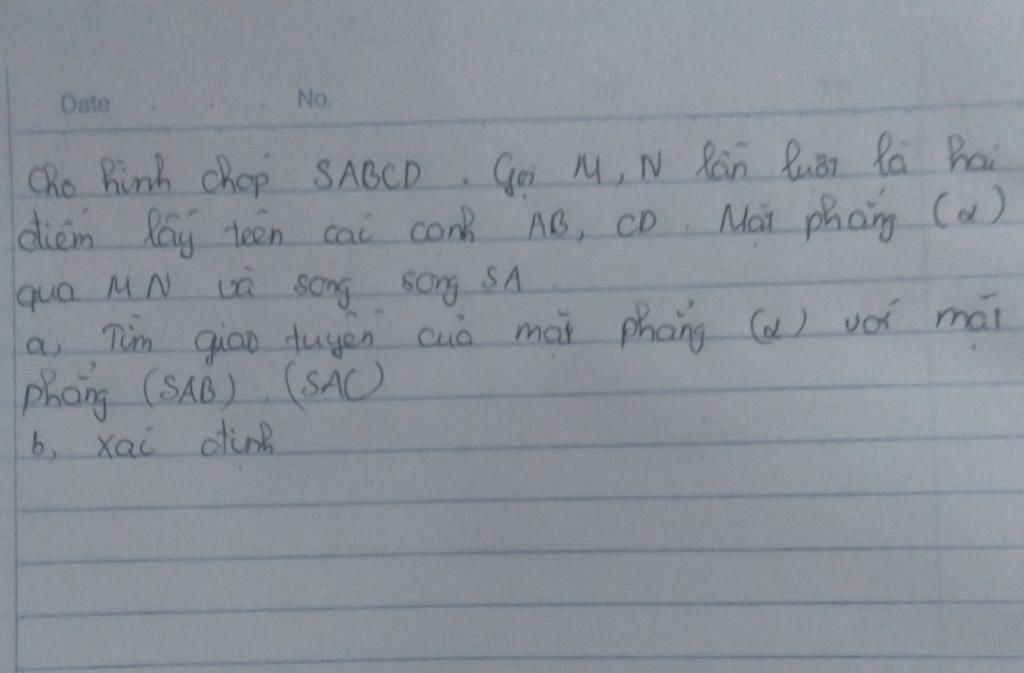 Date . . . No.
Cho hình chóp SABCD . Gọi M, N lần lượt là hai
điểm lấy trên các cạnh AB, CD . Mặt phẳng (α)
qua MN và song song SA
a, Tìm giao tuyến của mặt phẳng (α) với mặt
phẳng (SAB) . (SAC)
b, xác định